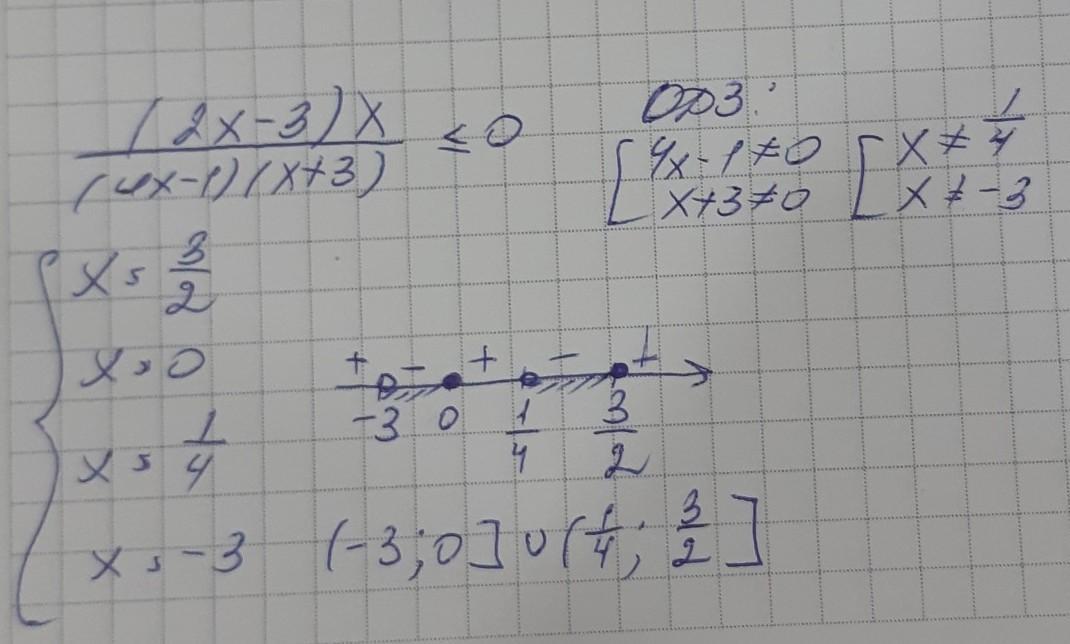 (2x-3)x / (4x-1)(x+3) ≤ 0
ОДЗ:
[4x-1≠0 [x≠1/4
x+3≠0 x≠-3
{x = 3/2
x = 0
x = 1/4
x = -3
+ - + - +
-3 0 1/4 3/2
(-3; 0] ∪ (1/4; 3/2]